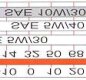 10 0 10 20
14 32 50 68
10W/30
SAE 10W/40
SAE 5W/30